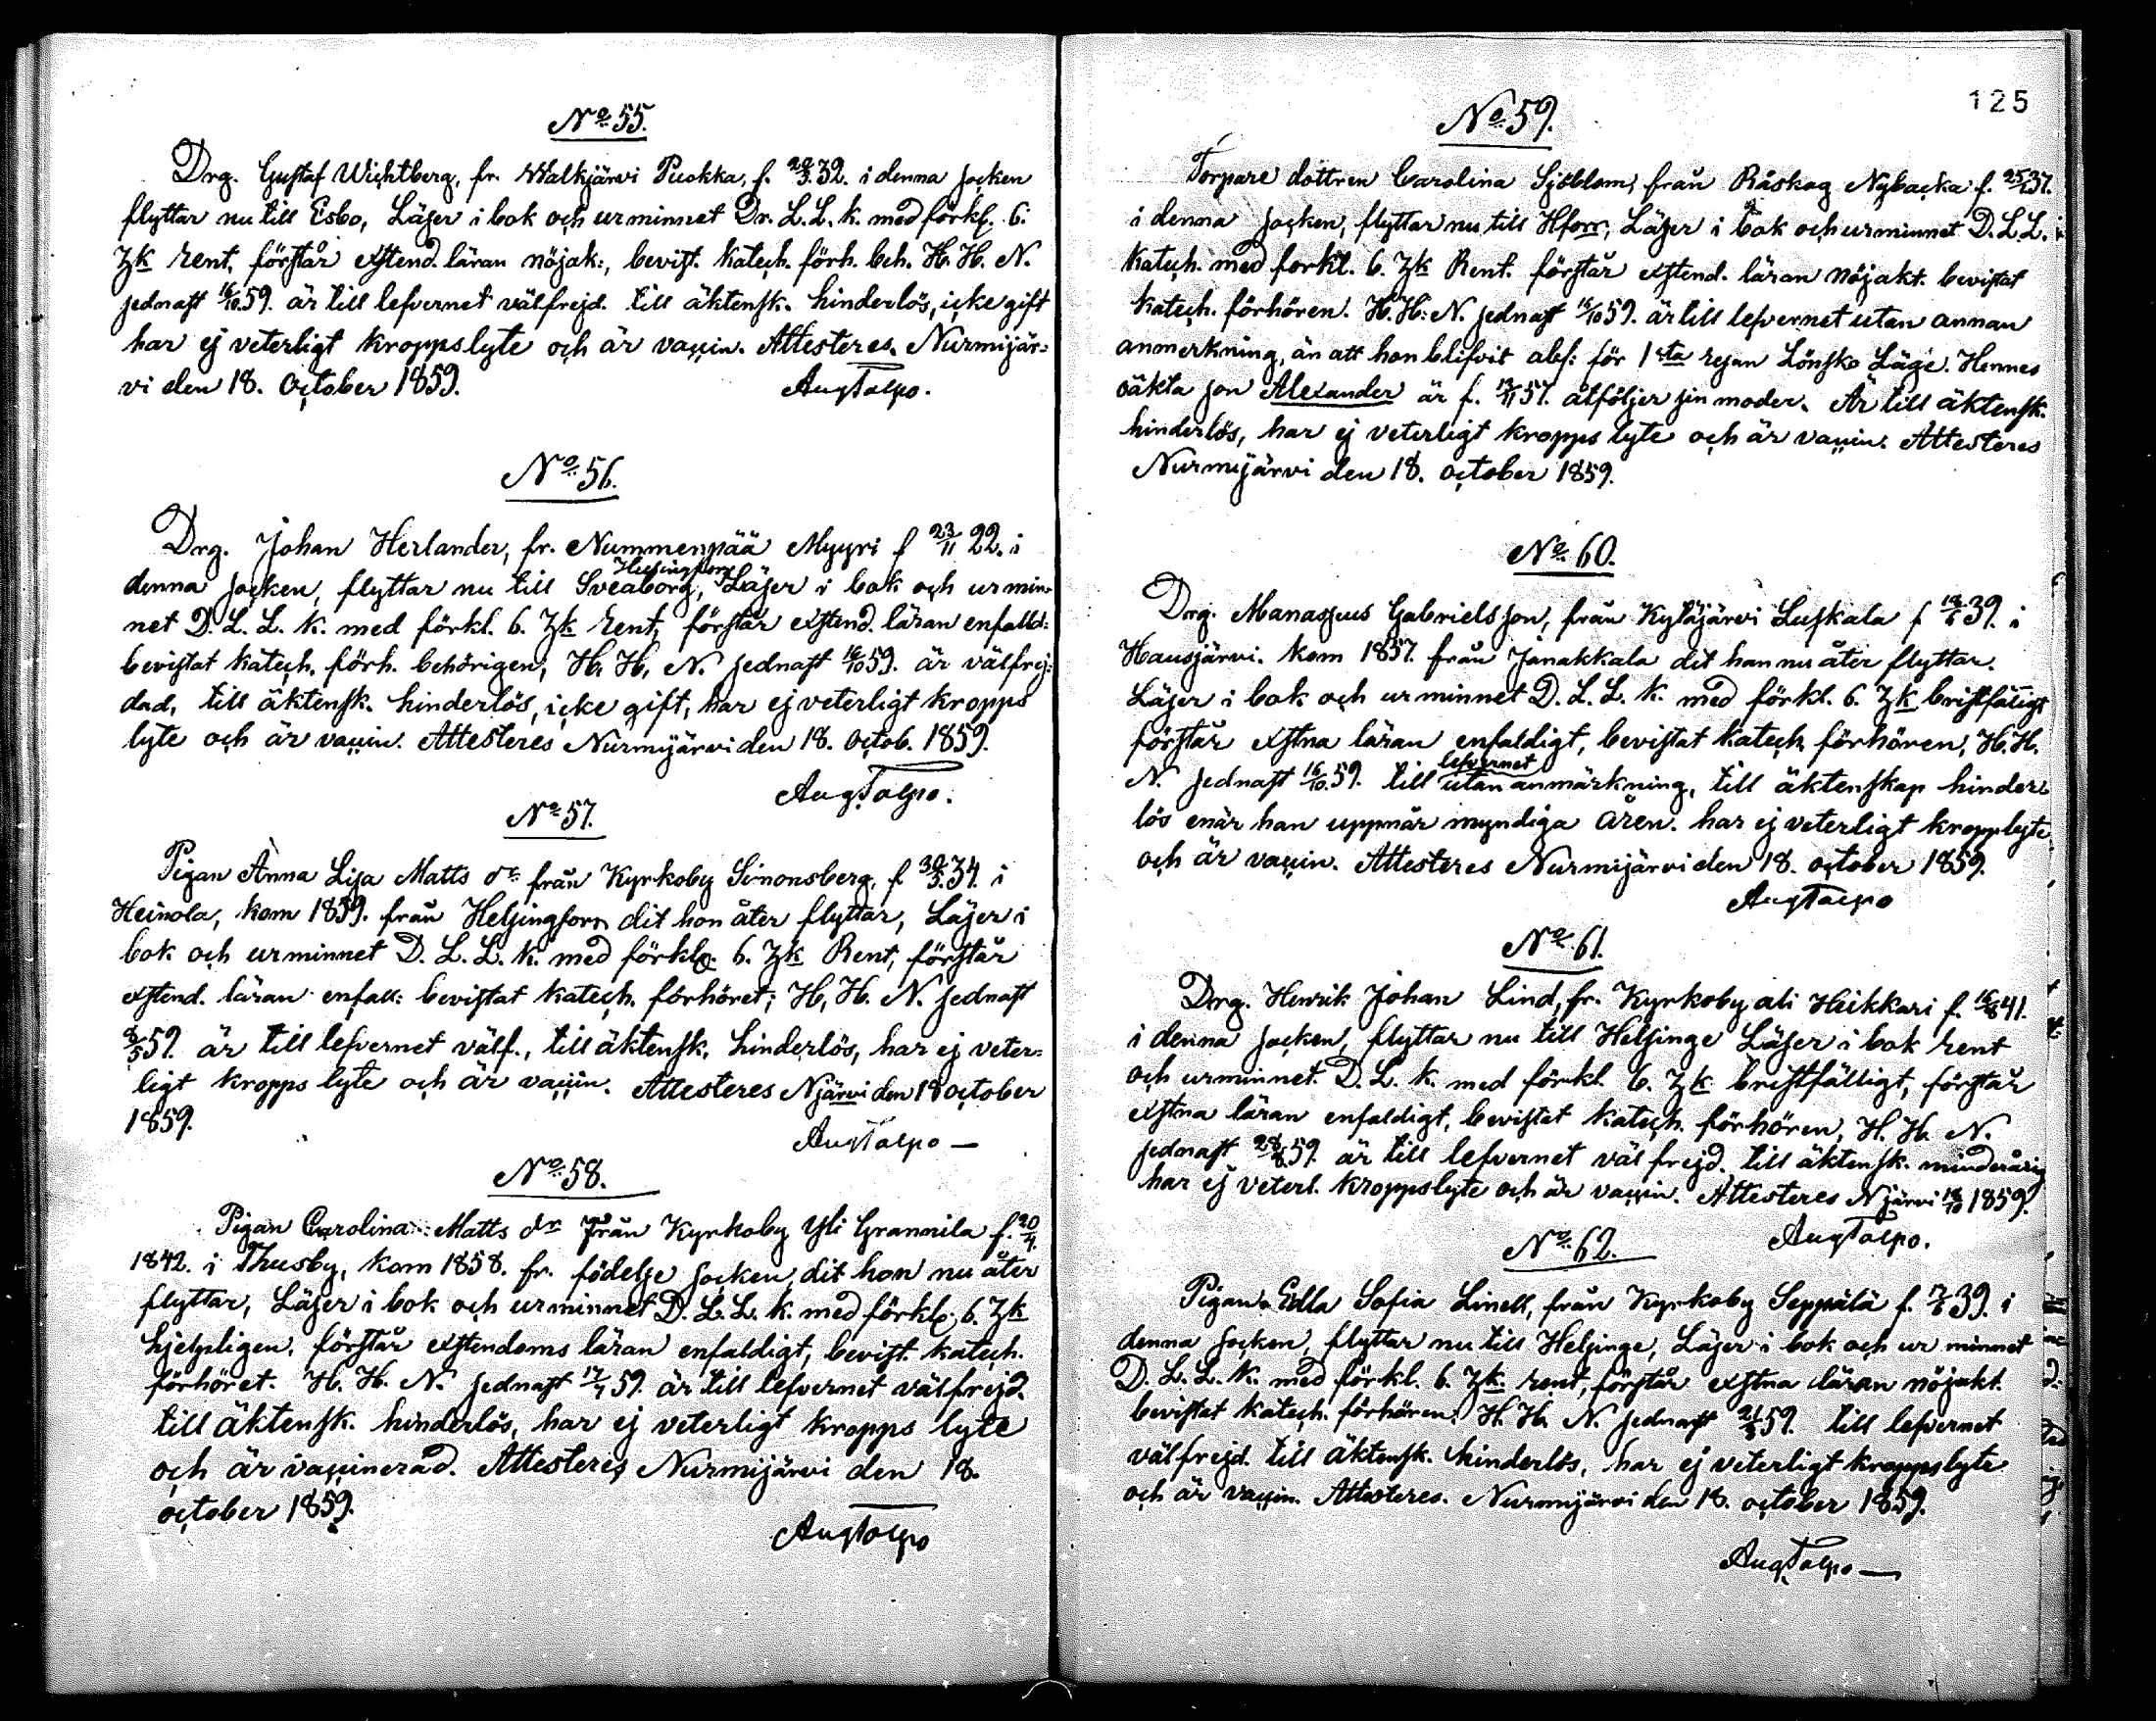 No 55.
Drg. Gustaf Wichtberg, fr. Walkjärvi Puokka, f. 29/3.32. i denna socken
flyttar nu till Esbo, Läser i bok och ur minnet Dr. L. L. k. med förkl. 6.
Zk rent, förstår xstend. läran nöjak:, bevist. katech. förh. beh. H. H. N.
sednast 16/10.59. är till lefvernet välfrejd. till äktensk. hinderlös, icke gift
har ej veterligt kroppslyte och är vaccin. Attesteres. Nurmijär=
vi den 18. October 1859.
Aug Talpo.
No 56.
Drg. Johan Herlander, fr. Nummenpää Myyri f 23/11 22. i
Helsingfors
denna socken, flyttar nu till Sveaborg, Läser i bok och ur min=
net D. L. L. k. med förkl. 6. Zk rent, förstår xstend. läran enfalld:
bevistat katech. förh. behörigen, H. H. N. sednast 16/10 59. är välfrej=
dad, till äktensk. hinderlös, icke gift, har ej veterligt kropps
lyte och är vaccin. Attesteres Nurmijärvi den 18. Octob. 1859.
Aug Talpo.
No 57.
Pigan Anna Lisa Matts dr från Kyrkoby Simonsberg, f 30/3.34. i
Heinola, kom 1859. från Helsingfors dit hon åter flyttar, Läser i
bok och ur minnet D. L. L. k. med förkl. 6. Zk Rent, förstår
xstend. läran enfall: bevistat katech. förhöret; H. H. N. sednast
/5 59. är till lefvernet välf., till äktensk. hinderlös, har ej veter=
ligt kropps lyte och är vaccin. Attesteres Njärvi den 18 october
1859.
Aug Talpo —
No 58.
Pigan Carolina Matts dr från Kyrkoby Yli Grannila f. 20/4.
1842. i Thusby, kom 1858. fr. födelse socken, dit hon nu åter
flyttar, Läser i bok och ur minnet D. L. L. k. med förkl. 6. Zk
hjelpligen, förstår xstendoms läran enfaldigt, bevist. katech.
förhöret. H. H. N. sednast 17/7 59. är till lefvernet välfrejd.
till äktensk. hinderlös, har ej veterligt kropps lyte
och är vaccinerad. Attesteres Nurmijärvi den 18.
october 1859.
Aug Talpo
125
No 59.
Torpare dottren Carolina Sjöblom, från Råskog Nybacka f. 37.
i denna socken, flyttar nu till Hfors, Läser i bok och ur minnet D. L. L.
Katech. med forkl. 6. Zk Rent. förstår xstend. läran nöjakt. bevistat
katech. förhören. H. H: N. sednast 16/10 59. är till lefvernet utan annan
anmerkning, än att hon blifvit abs: för 1sta resan Lönsko Läge. Hennes
oäkta son Alexander är f. /11 57. åtföljer sin moder. Är till äktensk.
hinderlös, har ej veterligt kropps lyte och är vaccin. Attesteres
Nurmijärvi den 18. october 1859.
No 60.
Drg. Manasseus Gabrielsson, från Kyläjärvi Luskala f 39. i
Hausjärvi. kom 1857. från Janakkala dit han nu åter flyttar.
Läser i bok och ur minnet D. L. L. k. med förkl. 6. Zk bristfälligt
förstår xstna läran enfaldigt, bevistat katech. förhören, H. H.
lefvernet
N. sednast 16/10.59. till utan anmärkning, till äktenskap hinder
lös enär han uppnår myndiga åren. har ej veterligt kropplyte
och är vaccin. Attesteres Nurmijärvi den 18. october 1859.
Aug Talpo
No 61.
Drg. Henrik Johan Lind, fr. Kyrkoby ali Heikkari f. 16/8 41.
i denna socken, flyttar nu till Helsinge Läser i bok rent
och ur minnet. D. L. k. med förkl. 6. Zk bristfälligt, förstår
xstna läran enfaldigt, bevistat katech. förhören, H. H. N.
sednast 28/8 59. är till lefvernet välfrejd. till äktensk. minderårig
har ej veterl. kroppslyte och är vaccin. Attesteres N järvi 18/10 1859.
Aug Talpo.
No 62.
Pigan Edla Sofia Linell, från Kyrkoby Seppälä f. 39. i
denna socken, flyttar nu till Helsinge, Läser i bok och ur minnet
D. L. L. k. med förkl. 6. Zk rent, förstår xstna läran nöjakt.
bevistat katech. förhören. H. H. N. sednast 59. till lefvernet
välfrejd. till äktensk. hinderlös, har ej veterligt kroppslyte
och är vaccin. Attesteres. Nurmijärvi den 18. october 1859.
Aug Talpo —